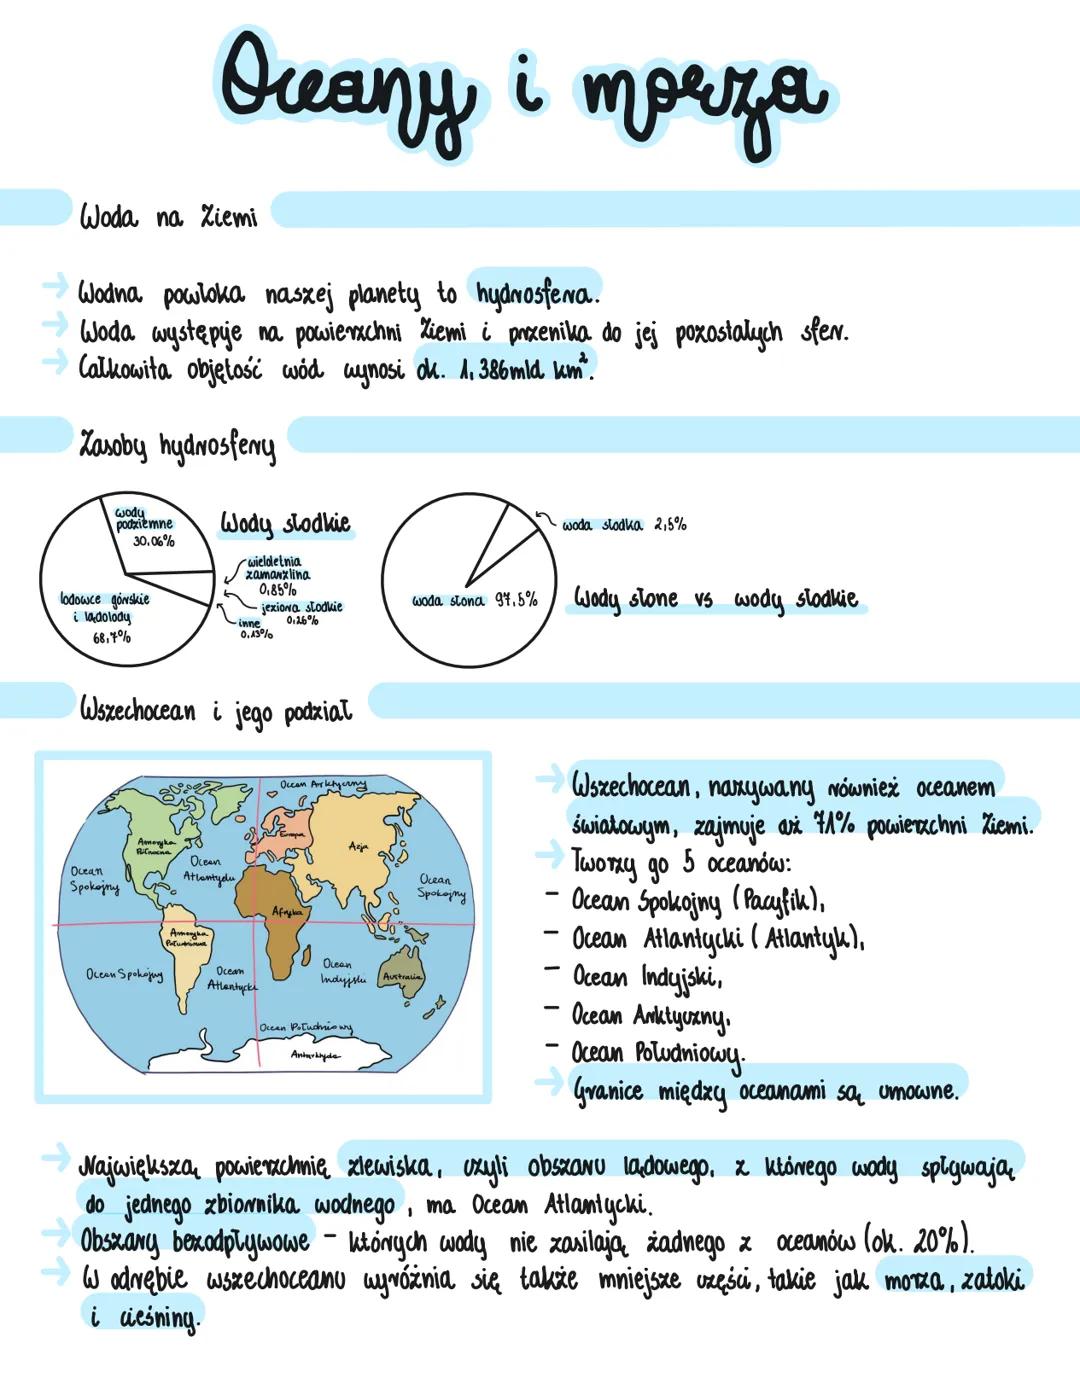 Oceany i morza
Woda na Ziemi
→ Wodna powłoka naszej planety to hydrosfera.
→ Woda występuje na powierzchni Ziemi i przenika do jej pozostałych sfer.
→ Całkowita objętość wód wynosi ok. 1,386mld km².
Zasoby hydrosfery
wody
podziemne
30,06%
lodowce górskie
i lądolody
68,7%
Wody słodkie
wieloletnia
zamarzlina
0,85%
jeziora słodkie
0,26%
inne
0,13%
woda słodka 2,5%
woda słona 97,5%
Wody słone vs wody słodkie
Wszechocean i jego podział
Ocean Arktyczny
Ameryka
Północna
Europa
Azja
Ocean
Atlantycki
Ocean
Spokojny
Ocean
Spokojny
Afryka
Ameryka
Południowa
Ocean Spokojny
Ocean
Atlantycki
Ocean
Indyjski
Australia
Ocean Południowy
Antarktyda
→ Wszechocean, nazywany również oceanem
światowym, zajmuje aż 71% powierzchni Ziemi.
→ Tworzy go 5 oceanów:
– Ocean Spokojny (Pacyfik),
– Ocean Atlantycki (Atlantyk),
– Ocean Indyjski,
– Ocean Arktyczny,
– Ocean Południowy.
→ Granice między oceanami są umowne.
→ Największą powierzchnię zlewiska, czyli obszaru lądowego, z którego wody spływają
do jednego zbiornika wodnego, ma Ocean Atlantycki.
→ Obszary bezodpływowe – których wody nie zasilają żadnego z oceanów (ok. 20%).
→ W odrębie wszechoceanu wyróżnia się także mniejsze części, takie jak morza, zatoki
i cieśniny.